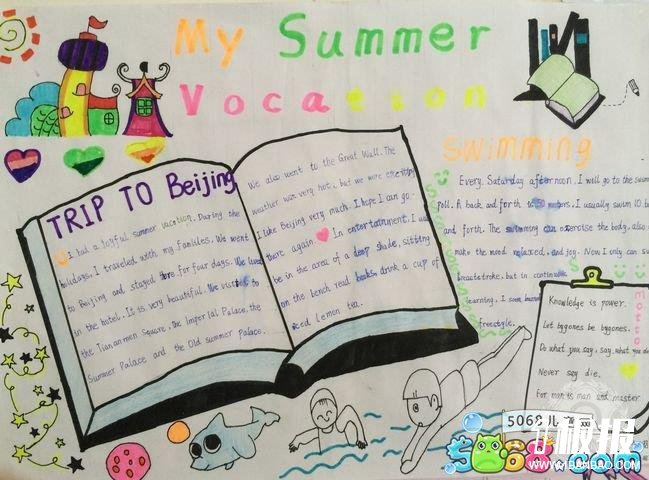 My Summer
Vocaeton
TRIP TO Beijing
I had a joyful summer vacation. During the
holidays, I traveled with my families. We went
to Beijing and stayed here for four days. We lived
in the hotel. It is very beautiful. We visited to
the Tiananmen Square, the Imperial Palace, the
Summer Palace and the Old summer Palace.
We also went to the Great Wall. The
weather was very hot, but we were exciting
I like Beijing very much. I hope I can go
there again. In entertainment. I
be in the area of a deep shade, sitting
on the bench read books, drink a cup of
iced Lemon tea.
Swimming
Every. Saturday afternoon, I well go to the swim
poll. A back and forth is 50 meters. I usually swim 10 b
and forth. The swimming can exercise the body, also
make the mood relaxed, and joy. Now I only can
breaststroke, but in
learning, I soon
freestyle.
Motto
Knowledge is power.
Let bygones be bygones.
Do what you say, say what you do
Never say die.
For man is man and master
5068儿
5068.com
板报
WWW.1BANBAO.COM